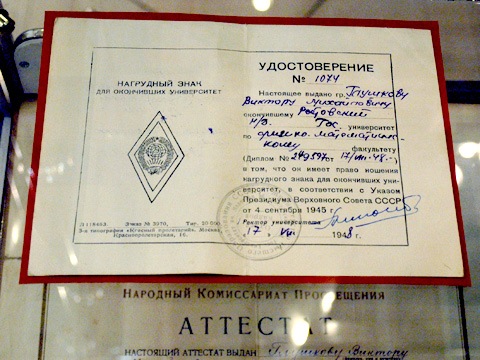 НАГРУДНЫЙ ЗНАК
ДЛЯ ОКОНЧИВШИХ УНИВЕРСИТЕТ
З 118453. Заказ № 3970. Тир. 50 000
3-я типография «Красный пролетарий». Москва
Краснопролетарская, 16.
УДОСТОВЕРЕНИЕ
№ 1074
Настоящее выдано гр.
Виктору Михайловичу
окончившему Ростовский
н/Д. Гос. университет
по физико-математическому
факультету
(Диплом № 249597 от 17/VIII-48.)
в том, что он имеет право ношения
нагрудного знака для окончивших уни-
верситет, в соответствии с Указом
Президиума Верховного Совета СССР
от 4 сентября 1945 г.
Ректор университета
17. VIII 1948 г.
НАРОДНЫЙ КОМИССАРИАТ ПРОСВЕЩЕНИЯ
АТТЕСТАТ
НАСТОЯЩИЙ АТТЕСТАТ ВЫДАН Виктору